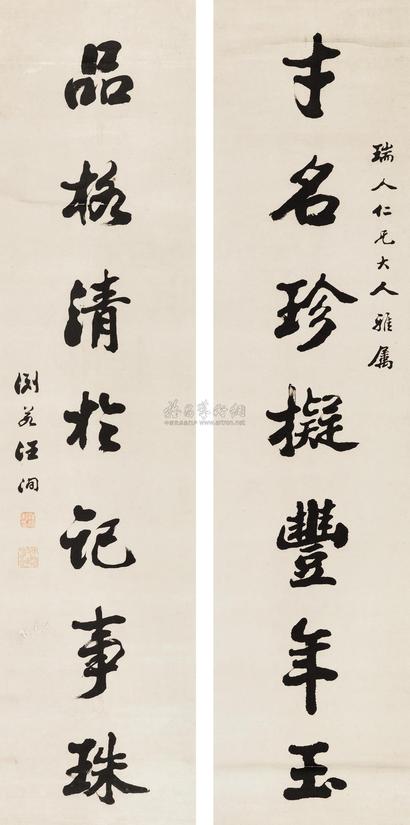 瑞人仁兄大人雅属
才名珍擬豐年玉
品格清於記事珠
渊若汪洵
雅昌藝術網